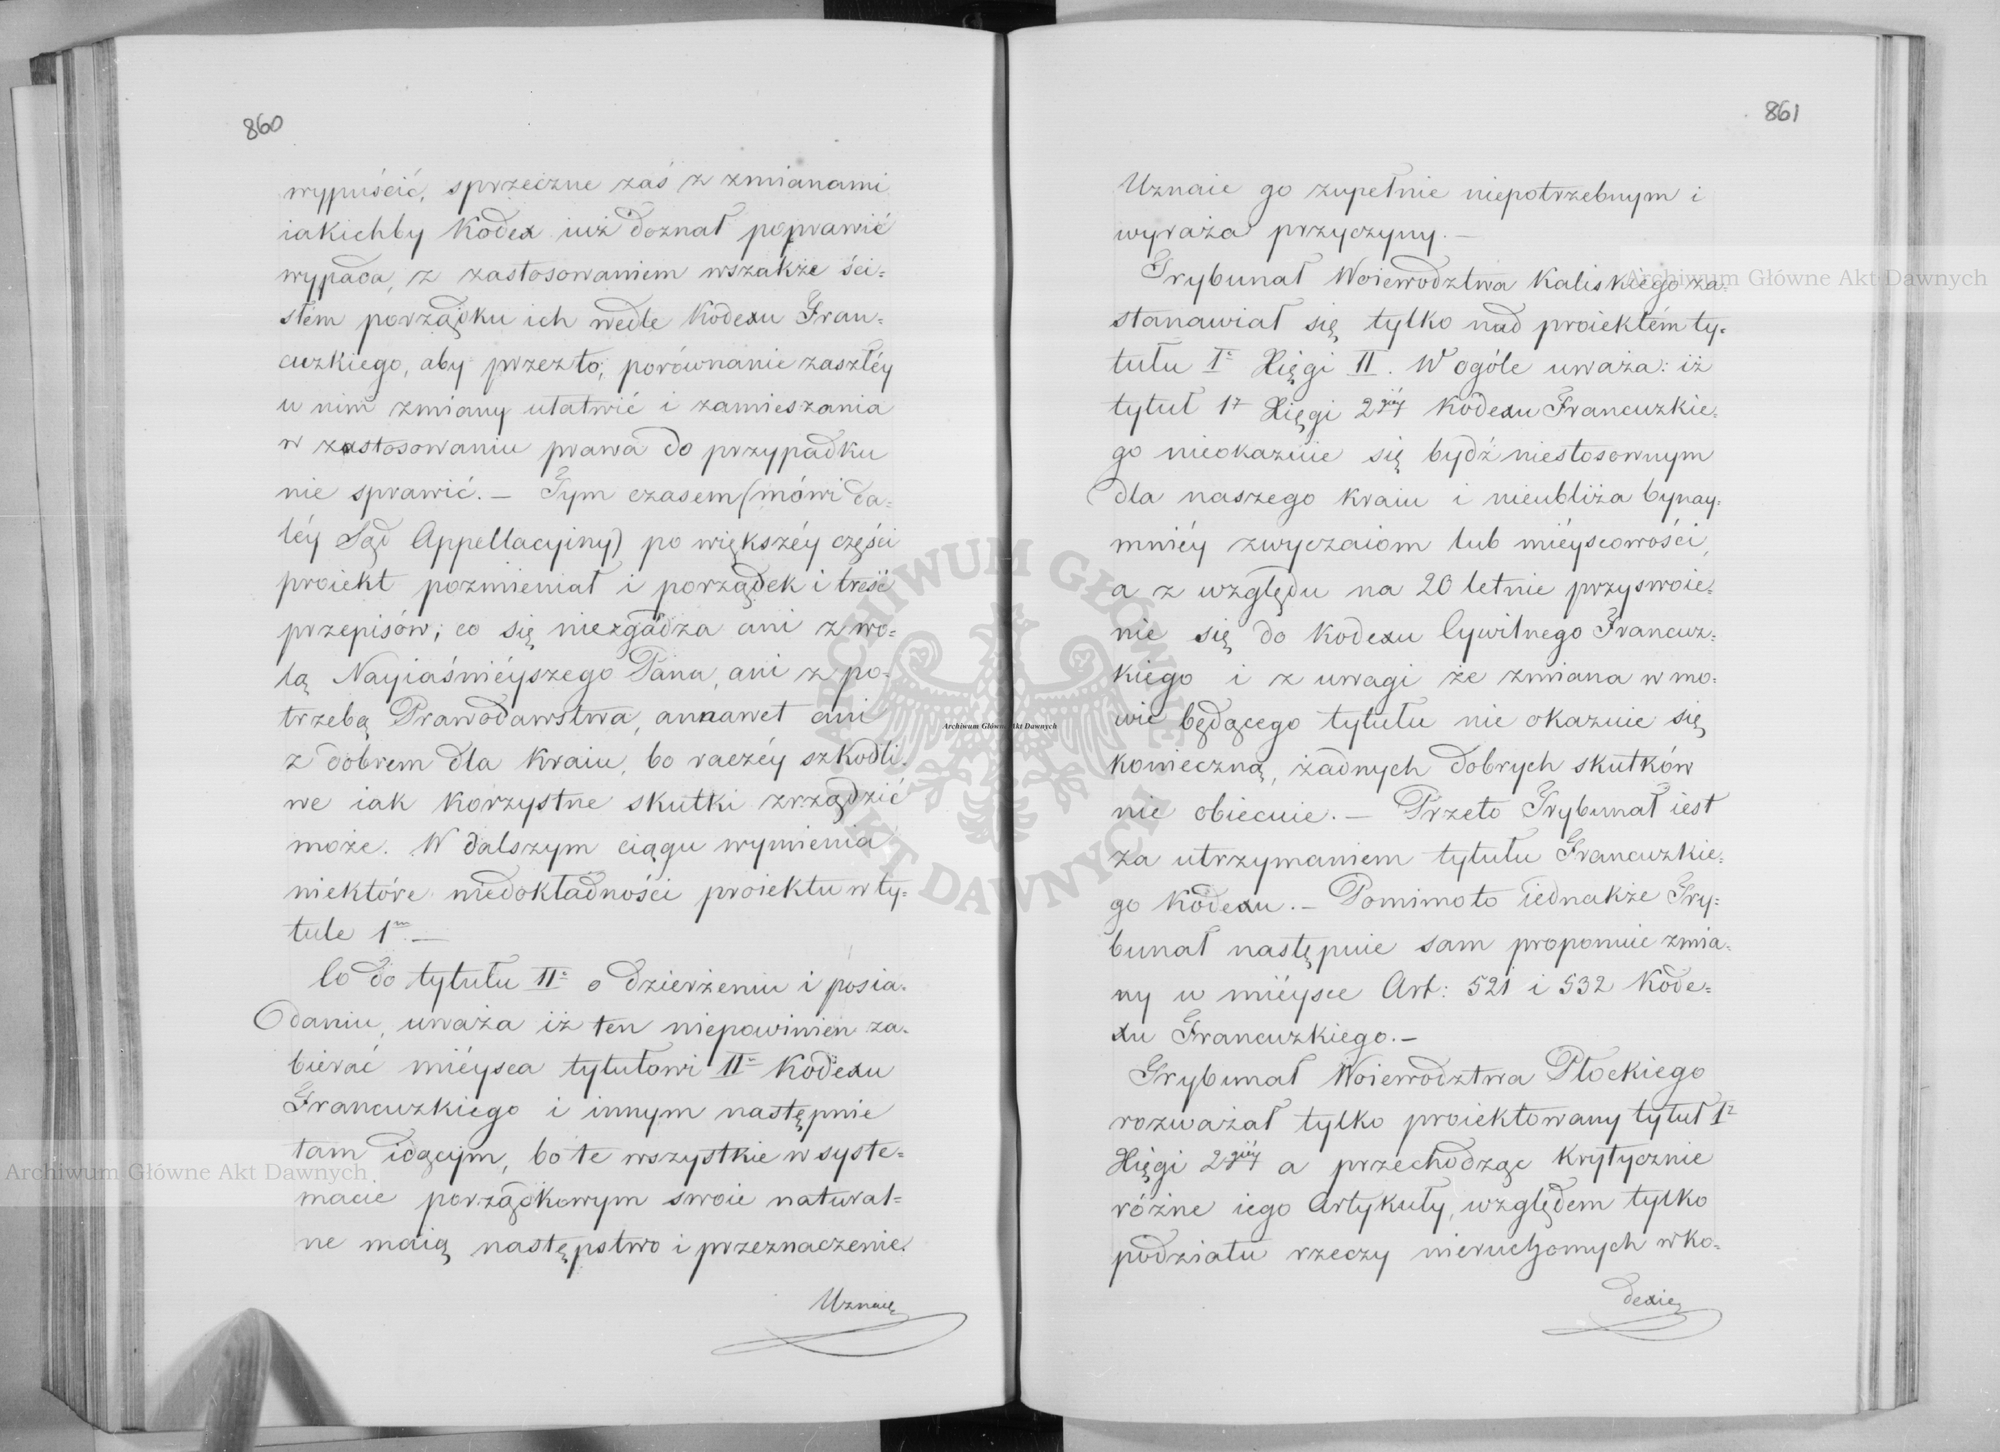 860
wypuścić, sprzeczne zaś z zmianami
iakichby Kodex iuż doznał poprawić
wypada, z zastosowaniem wszakże ści=
słém porządku ich wedle Kodexu Fran=
cuzkiego, aby przez to, porównanie zaszłéy
w nim zmiany ułatwić i zamieszania
w zastosowaniu prawa do przypadku
nie sprawić. — Tym czasem (mówi da=
léy Sąd Appellacyiny) po większéy części
proiekt pozmieniał i porządek i treść
przepisów; co się niezgadza ani z wo=
lą Nayiaśniéyszego Pana, ani z po=
trzebą Prawodawstwa, annawet ani
z dobrem dla Kraiu, bo raczéy szkodli=
we iak korzystne skutki zrządzić
może. W dalszym ciągu wymienia
niektóre niedokładności proiektu w ty=
tule 1m. —
Co do tytułu IIo o dzierżeniu i posia=
daniu, uważa iż ten niepowinien za=
bierać miéysca tytułowi IIo Kodexu
Francuzkiego i innym następnie
tam idącym, bo te wszystkie w syste=
macie porządkowym swoie natural=
ne maią następstwo i przeznaczenie.
Uznaie
861
Uznaie go zupełnie niepotrzebnym i
wyraża przyczyny. —
Trybunał Woiewodztwa Kaliskiego za=
stanawiał się tylko nad proiektém ty=
tułu Io Xięgi II. W ogóle uważa: iż
tytuł 1y Xięgi 2giéy Kodexu Francuzkie=
go nieokazuie się bydź niestosownym
dla naszego kraiu i nieubliża bynay=
mniéy zwyczaiom lub miéyscowości,
a z względu na 20 letnie przyswoie=
nie się do Kodexu Cywilnego Francuz=
kiego i z uwagi że zmiana w mo=
wie będącego tytułu nie okazuie się
konieczną, żadnych dobrych skutków
nie obiecuie. — Przeto Trybunał iest
za utrzymaniem tytułu Francuzkie=
go Kodexu. — Pomimo to iednakże Try=
bunał następnie sam proponuie zmia=
ny w miéysce Art: 521 i 532 Kode=
xu Francuzkiego. —
Trybunał Woiewodztwa Płockiego
rozważał tylko proiektowany tytuł 1y
Xięgi 2giéy a przechodząc krytycznie
różne iego Artykuły, względem tylko
podziału rzeczy nieruchomych w ko=
dexie
Archiwum Główne Akt Dawnych
Archiwum Główne Akt Dawnych
Archiwum Główne Akt Dawnych
ARCHIWUM GŁÓWNE AKT DAWNYCH